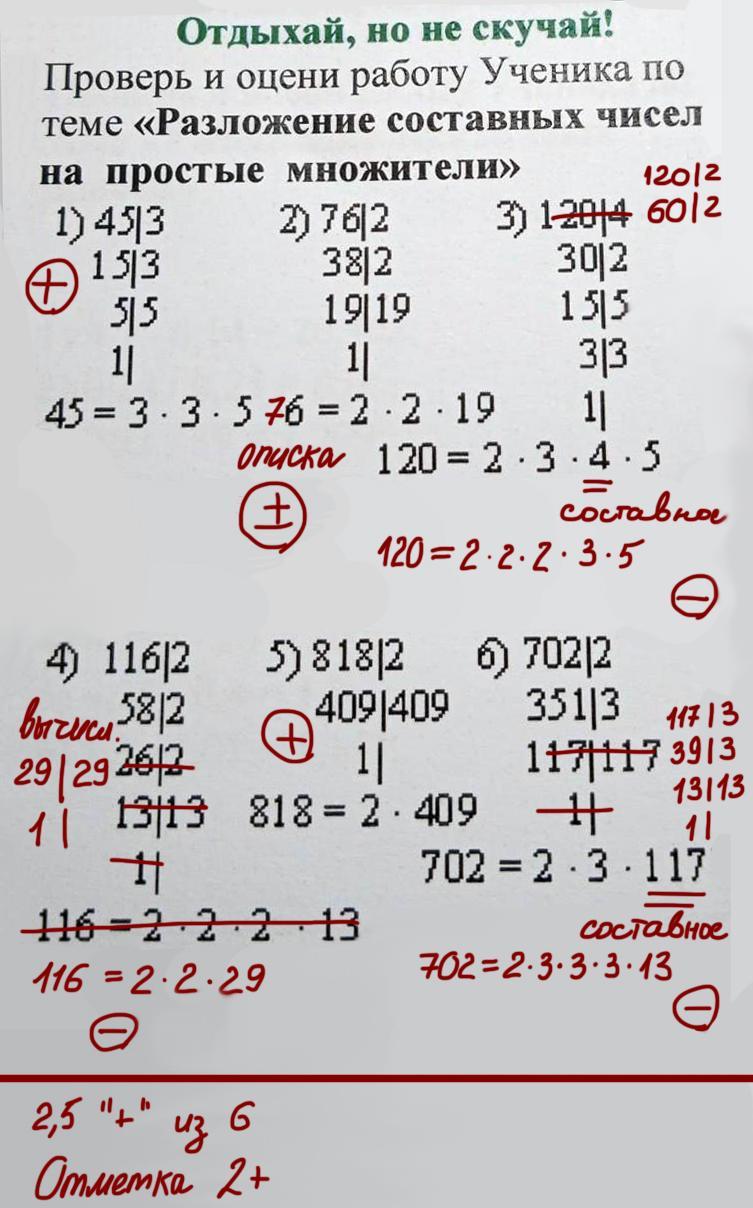 Отдыхай, но не скучай!
Проверь и оцени работу Ученика по
теме «Разложение составных чисел
на простые множители»
1) 45|3
15|3
5|5
1|
45 = 3 · 3 · 5
2) 76|2
38|2
19|19
1|
76 = 2 · 2 · 19
описка
±
120|2
60|2
3) 120|4
30|2
15|5
3|3
1|
120 = 2 · 3 · 4 · 5
составное
120 = 2 · 2 · 2 · 3 · 5
−
+
4) 116|2
58|2
26|2
13|13
1|
вычисл.
29|29
1|
116 = 2 · 2 · 2 · 13
116 = 2 · 2 · 29
−
5) 818|2
409|409
1|
+
818 = 2 · 409
6) 702|2
351|3
117|117
1|
117|3
39|3
13|13
1|
702 = 2 · 3 · 117
составное
702 = 2 · 3 · 3 · 3 · 13
−
2,5 "+" из 6
Отметка 2+